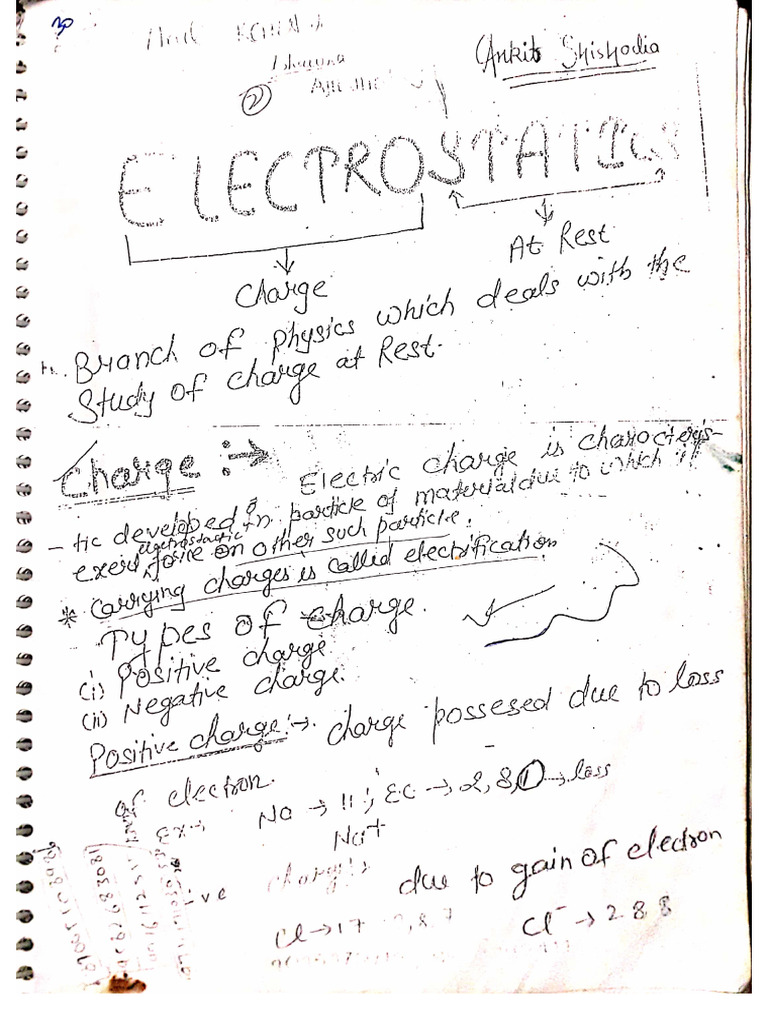 Ankit Shishodia
②
ELECTROSTATICS
Charge
At Rest
Branch of Physics which deals with the
Study of charge at Rest.
Charge :→ Electric charge is characteris-
-tic developed in particle of material due to which it
exert electrostatic force on other such particle.
* Carrying charges is called electrification
Types of charge.
(i) Positive charge
(ii) Negative charge.
Positive charge :→ charge possesed due to loss
of electron.
Ex:→ Na → 11 ; EC → 2, 8, 1 → loss
Na+
ive charge :→ due to gain of electron
Cl → 17 2, 8, 7 Cl⁻ → 2 8 8